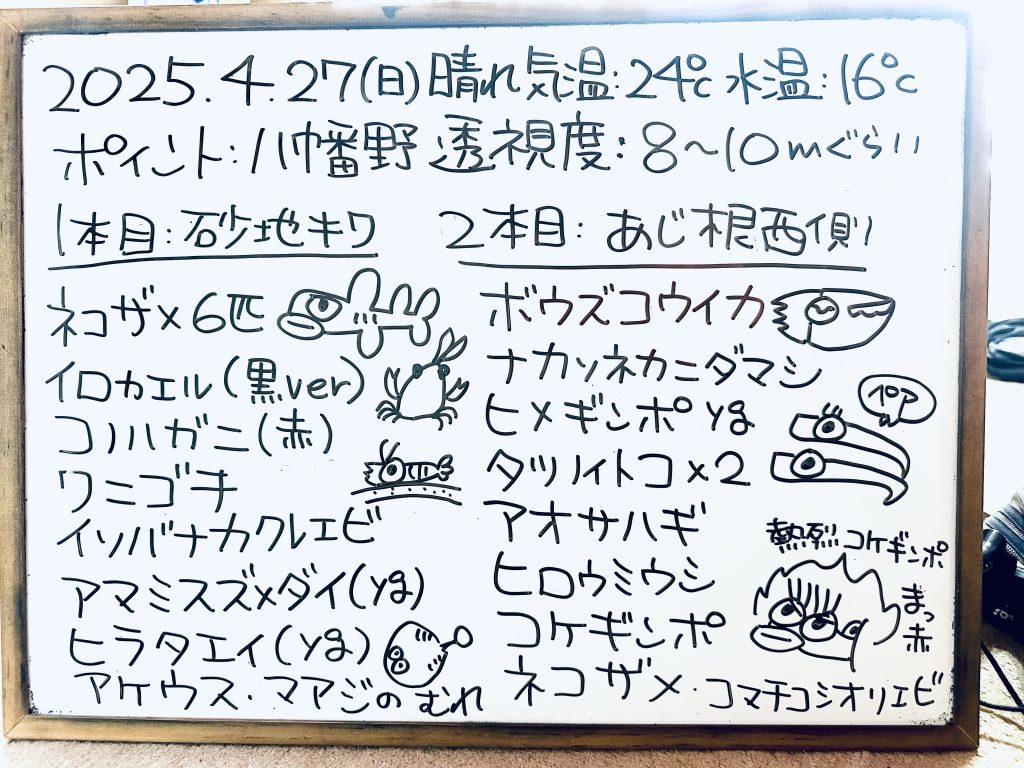 2025.4.27(日)晴れ 気温:24℃ 水温:16℃
ポイント:八幡野 透視度:8〜10mぐらい
1本目:砂地キワ
ネコザメ6匹
イロカエル(黒ver)
コノハガニ(赤)
ワニゴチ
イソバナカクレエビ
アマミスズメダイ(yg)
ヒラタエイ(yg)
アケウス・マアジのむれ
2本目:あじ根西側
ボウズコウイカ
ナカソネカニダマシ
ヒメギンポyg
ペア
タツノイトコ×2
アオサハギ
ヒロウミウシ
コケギンポ
熱烈コケギンポ
まっ赤
ネコザメ・コマチコシオリエビ